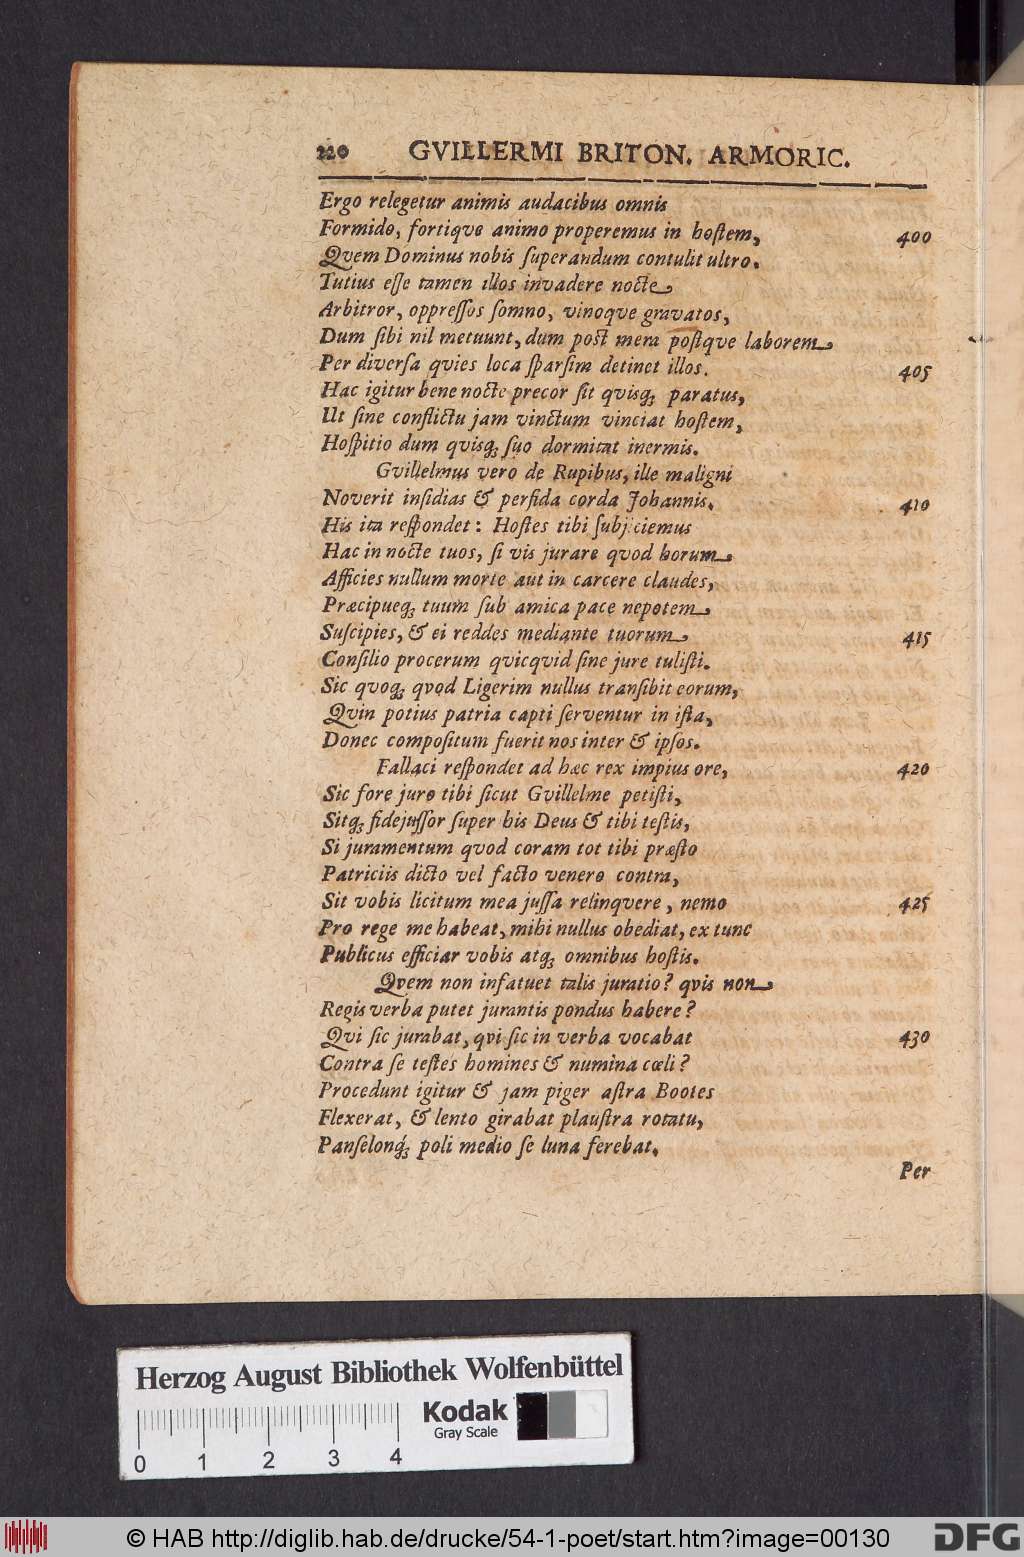 220 GVILLERMI BRITON. ARMORIC.
Ergo relegetur animis audacibus omnis
Formido, fortiqve animo properemus in hostem, 400
Qvem Dominus nobis superandum contulit ultro.
Tutius esse tamen illos invadere nocte
Arbitror, oppressos somno, vinoqve gravatos,
Dum sibi nil metuunt, dum post mera postqve laborem
Per diversa qvies loca sparsim detinet illos. 405
Hac igitur bene nocte precor sit qvisq; paratus,
Ut sine conflictu jam vinctum vinciat hostem,
Hospitio dum qvisq; suo dormitat inermis.
Gvillelmus vero de Rupibus, ille maligni
Noverit insidias & perfida corda Johannis, 410
His ita respondet: Hostes tibi subjiciemus
Hac in nocte tuos, si vis jurare qvod horum
Afficies nullum morte aut in carcere claudes,
Præcipueq; tuum sub amica pace nepotem
Suscipies, & ei reddes mediante tuorum 415
Consilio procerum qvicqvid sine jure tulisti.
Sic qvoq; qvod Ligerim nullus transibit eorum,
Qvin potius patria capti serventur in ista,
Donec compositum fuerit nos inter & ipsos.
Fallaci respondet ad hæc rex impius ore, 420
Sic fore juro tibi sicut Gvillelme petisti,
Sitq; fidejussor super his Deus & tibi testis,
Si juramentum qvod coram tot tibi præsto
Patriciis dicto vel facto venero contra,
Sit vobis licitum mea jussa relinqvere, nemo 425
Pro rege me habeat, mihi nullus obediat, ex tunc
Publicus efficiar vobis atq; omnibus hostis.
Qvem non infatuet talis juratio? qvis non
Regis verba putet jurantis pondus habere?
Qvi sic jurabat, qvi sic in verba vocabat 430
Contra se testes homines & numina cœli?
Procedunt igitur & jam piger astra Bootes
Flexerat, & lento girabat plaustra rotatu,
Panselonq́; poli medio se luna ferebat.
Per
Herzog August Bibliothek Wolfenbüttel
Kodak
Gray Scale
0 1 2 3 4
© HAB http://diglib.hab.de/drucke/54-1-poet/start.htm?image=00130
DFG